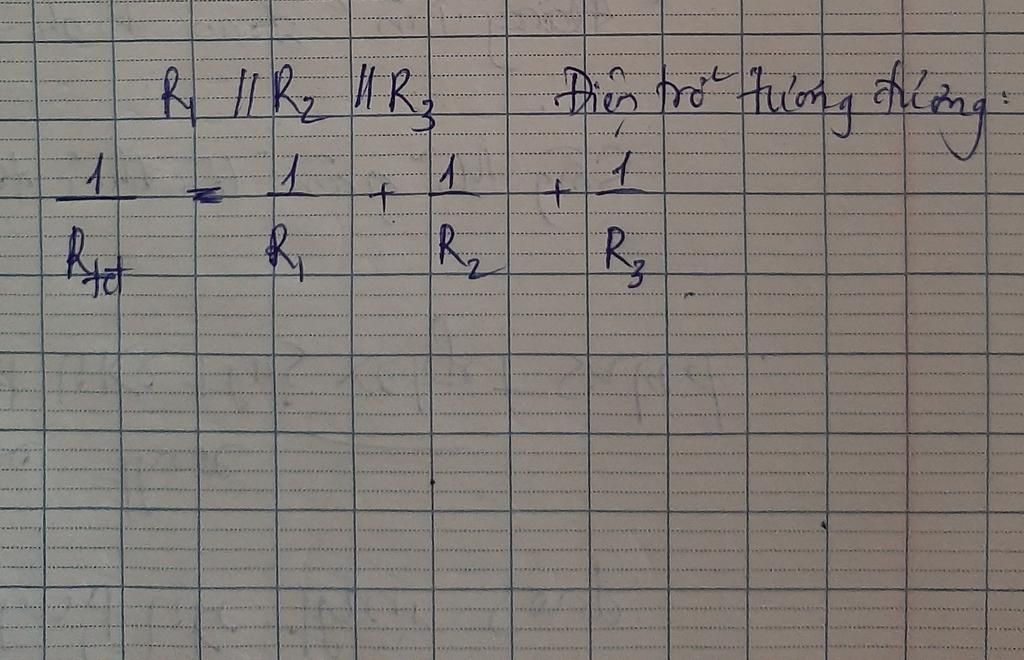 R₁ // R₂ // R₃ Điện trở tương đương:
1/Rtđ = 1/R₁ + 1/R₂ + 1/R₃